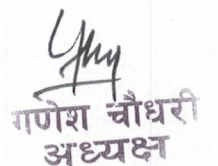 गणेश चौधरी
अध्यक्ष